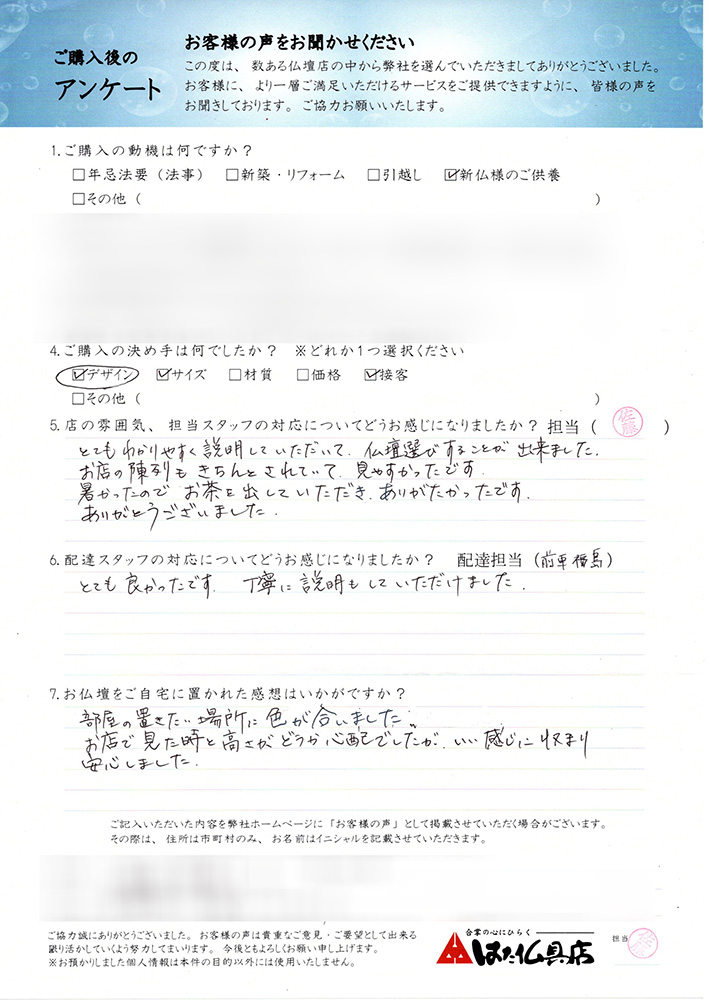 ご購入後の
アンケート
お客様の声をお聞かせください
この度は、数ある仏壇店の中から弊社を選んでいただきましてありがとうございました。
お客様に、より一層ご満足いただけるサービスをご提供できますように、皆様の声を
お聞きしております。ご協力お願いいたします。
1.ご購入の動機は何ですか？
□年忌法要（法事） □新築・リフォーム □引越し ☑新仏様のご供養
□その他（ ）
4.ご購入の決め手は何でしたか？ ※どれか1つ選択ください
☑デザイン ☑サイズ □材質 □価格 ☑接客
□その他（ ）
5.店の雰囲気、担当スタッフの対応についてどうお感じになりましたか？ 担当（佐藤）
とてもわかりやすく説明していただいて、仏壇選びすることが出来ました。
お店の陳列もきちんとされていて、見やすかったです。
暑かったのでお茶を出していただき、ありがたかったです。
ありがとうございました。
6.配達スタッフの対応についてどうお感じになりましたか？ 配達担当（前平 福島）
とても良かったです。丁寧に説明もしていただけました。
7.お仏壇をご自宅に置かれた感想はいかがですか？
部屋の置きたい場所に色が合いました。
お店で見た時と高さがどうか心配でしたが、いい感じに収まり
安心しました。
ご記入いただいた内容を弊社ホームページに「お客様の声」として掲載させていただく場合がございます。
その際は、住所は市町村のみ、お名前はイニシャルを記載させていただきます。
ご協力誠にありがとうございました。お客様の声は貴重なご意見・ご要望として出来る
限り活かしていくよう努力してまいります。今後ともよろしくお願い申し上げます。
※お預かりしました個人情報は本件の目的以外には使用いたしません。
合掌の心にひらく
はた仏具店
担当